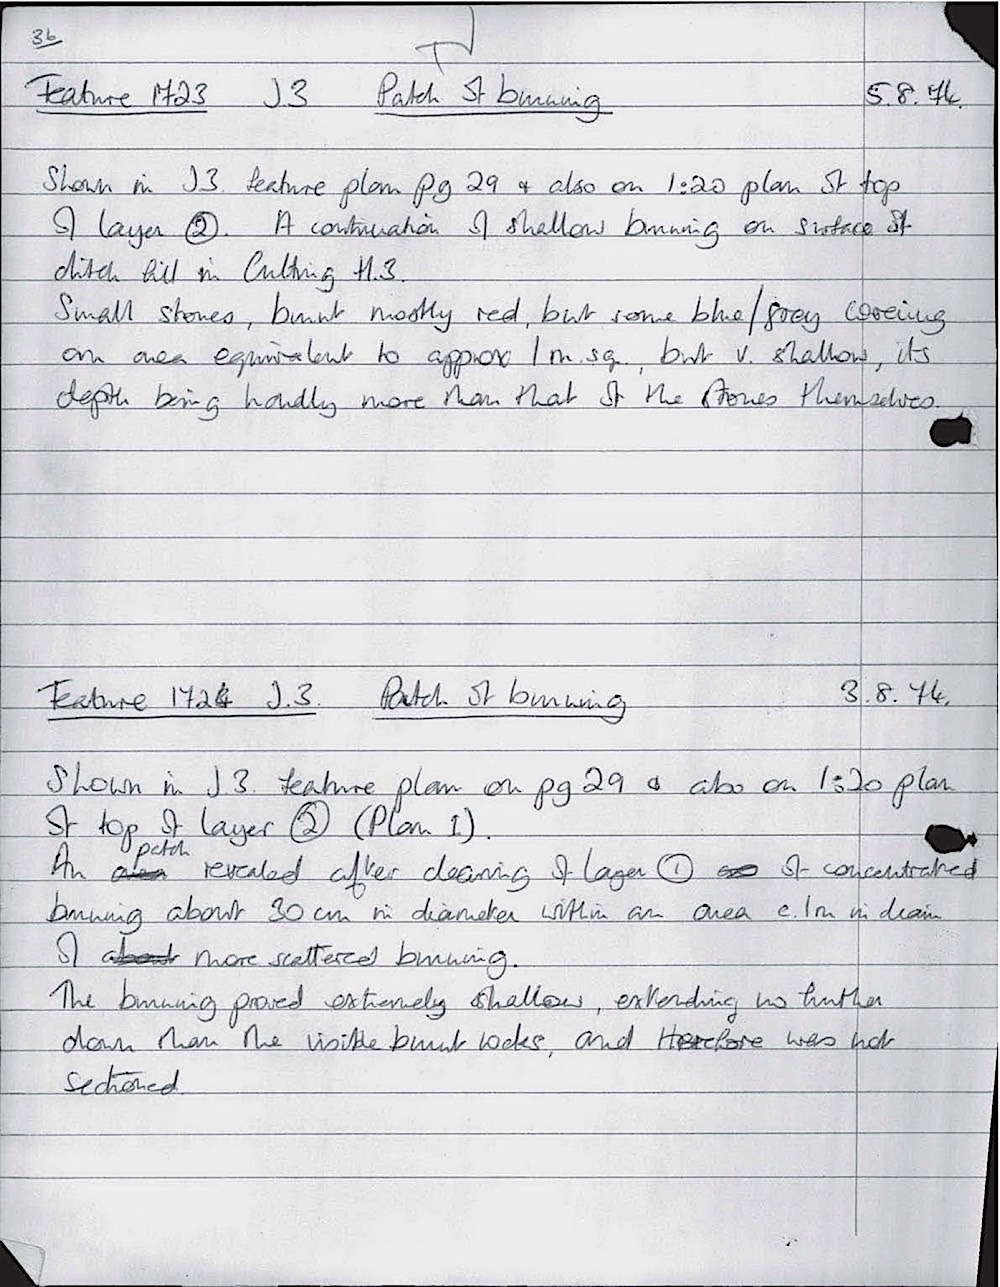 36
Feature 1723 J3 Patch of burning 5.8.74.
Shown in J3 feature plan pg 29 & also on 1:20 plan of top
of layer ②. A continuation of shallow burning on surface of
ditch fill in Cutting H.3.
Small stones, burnt mostly red, but some blue/grey covering
an area equivalent to approx 1m.sq., but v. shallow, its
depth being hardly more than that of the stones themselves.
Feature 1724 J.3. Patch of burning 3.8.74.
Shown in J.3. feature plan on pg 29 & also on 1:20 plan
of top of layer ② (Plan 1).
patch
An area revealed after cleaning of layer ① of concentrated
burning about 30cm in diameter within an area c.1m in diam
of about more scattered burning.
The burning proved extremely shallow, extending no further
down than the visible burnt rocks, and therefore was not
sectioned.